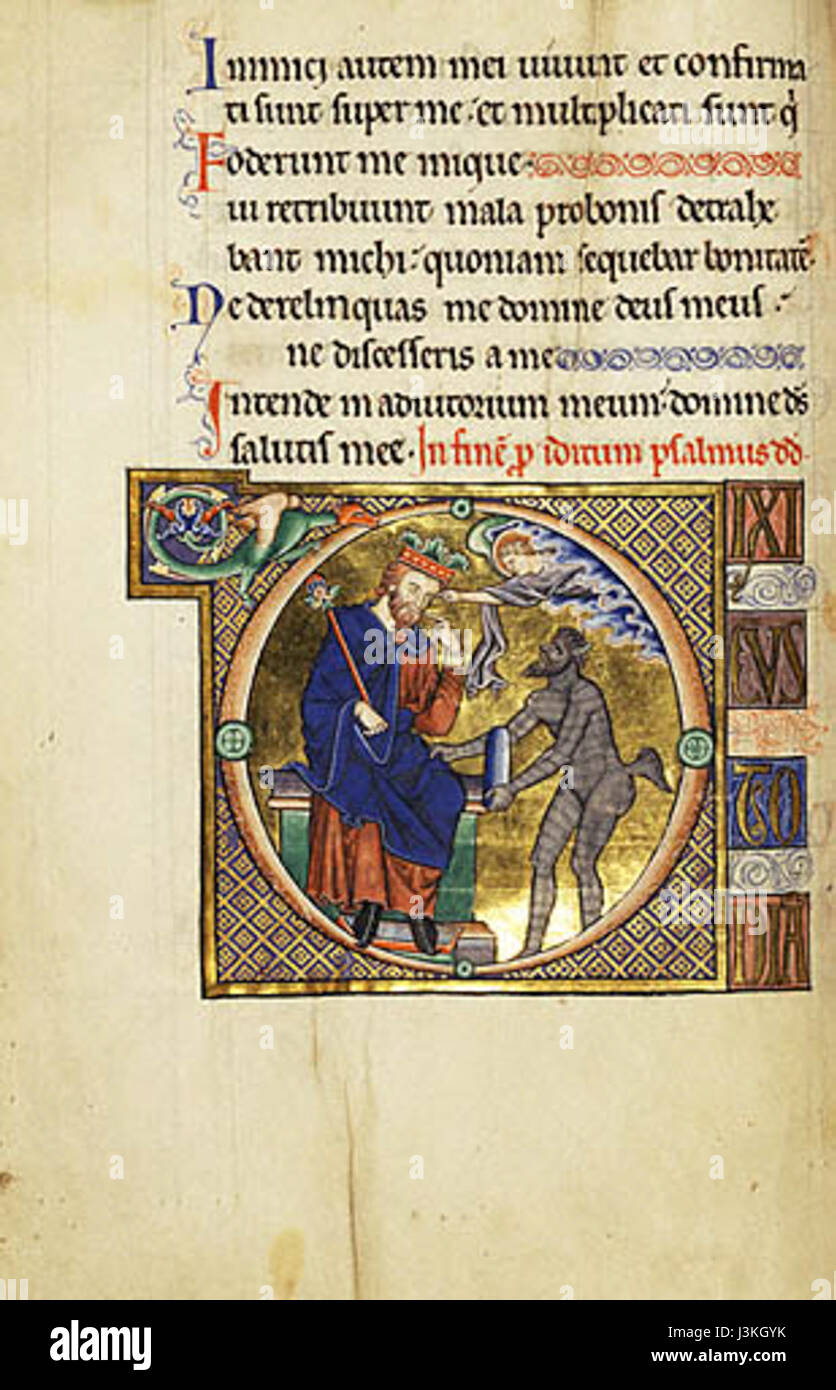 Inimici autem mei uiuunt et confirma
ti sunt super me. et multiplicati sunt q̇
Foderunt me inique.
ui retribuunt mala pro bonis detrahe
bant michi. quoniam sequebar bonitatē.
Ne derelinquas me domine deus meus.
ne discesseris a me
Intende in adiutorium meum. domine d̄s
salutis mee. In finē p iditum psalmus dd.
D
IXI
CUS
TO
DIA
a alamy stock photo
alamy
Image ID: J3KGYK
www.alamy.com